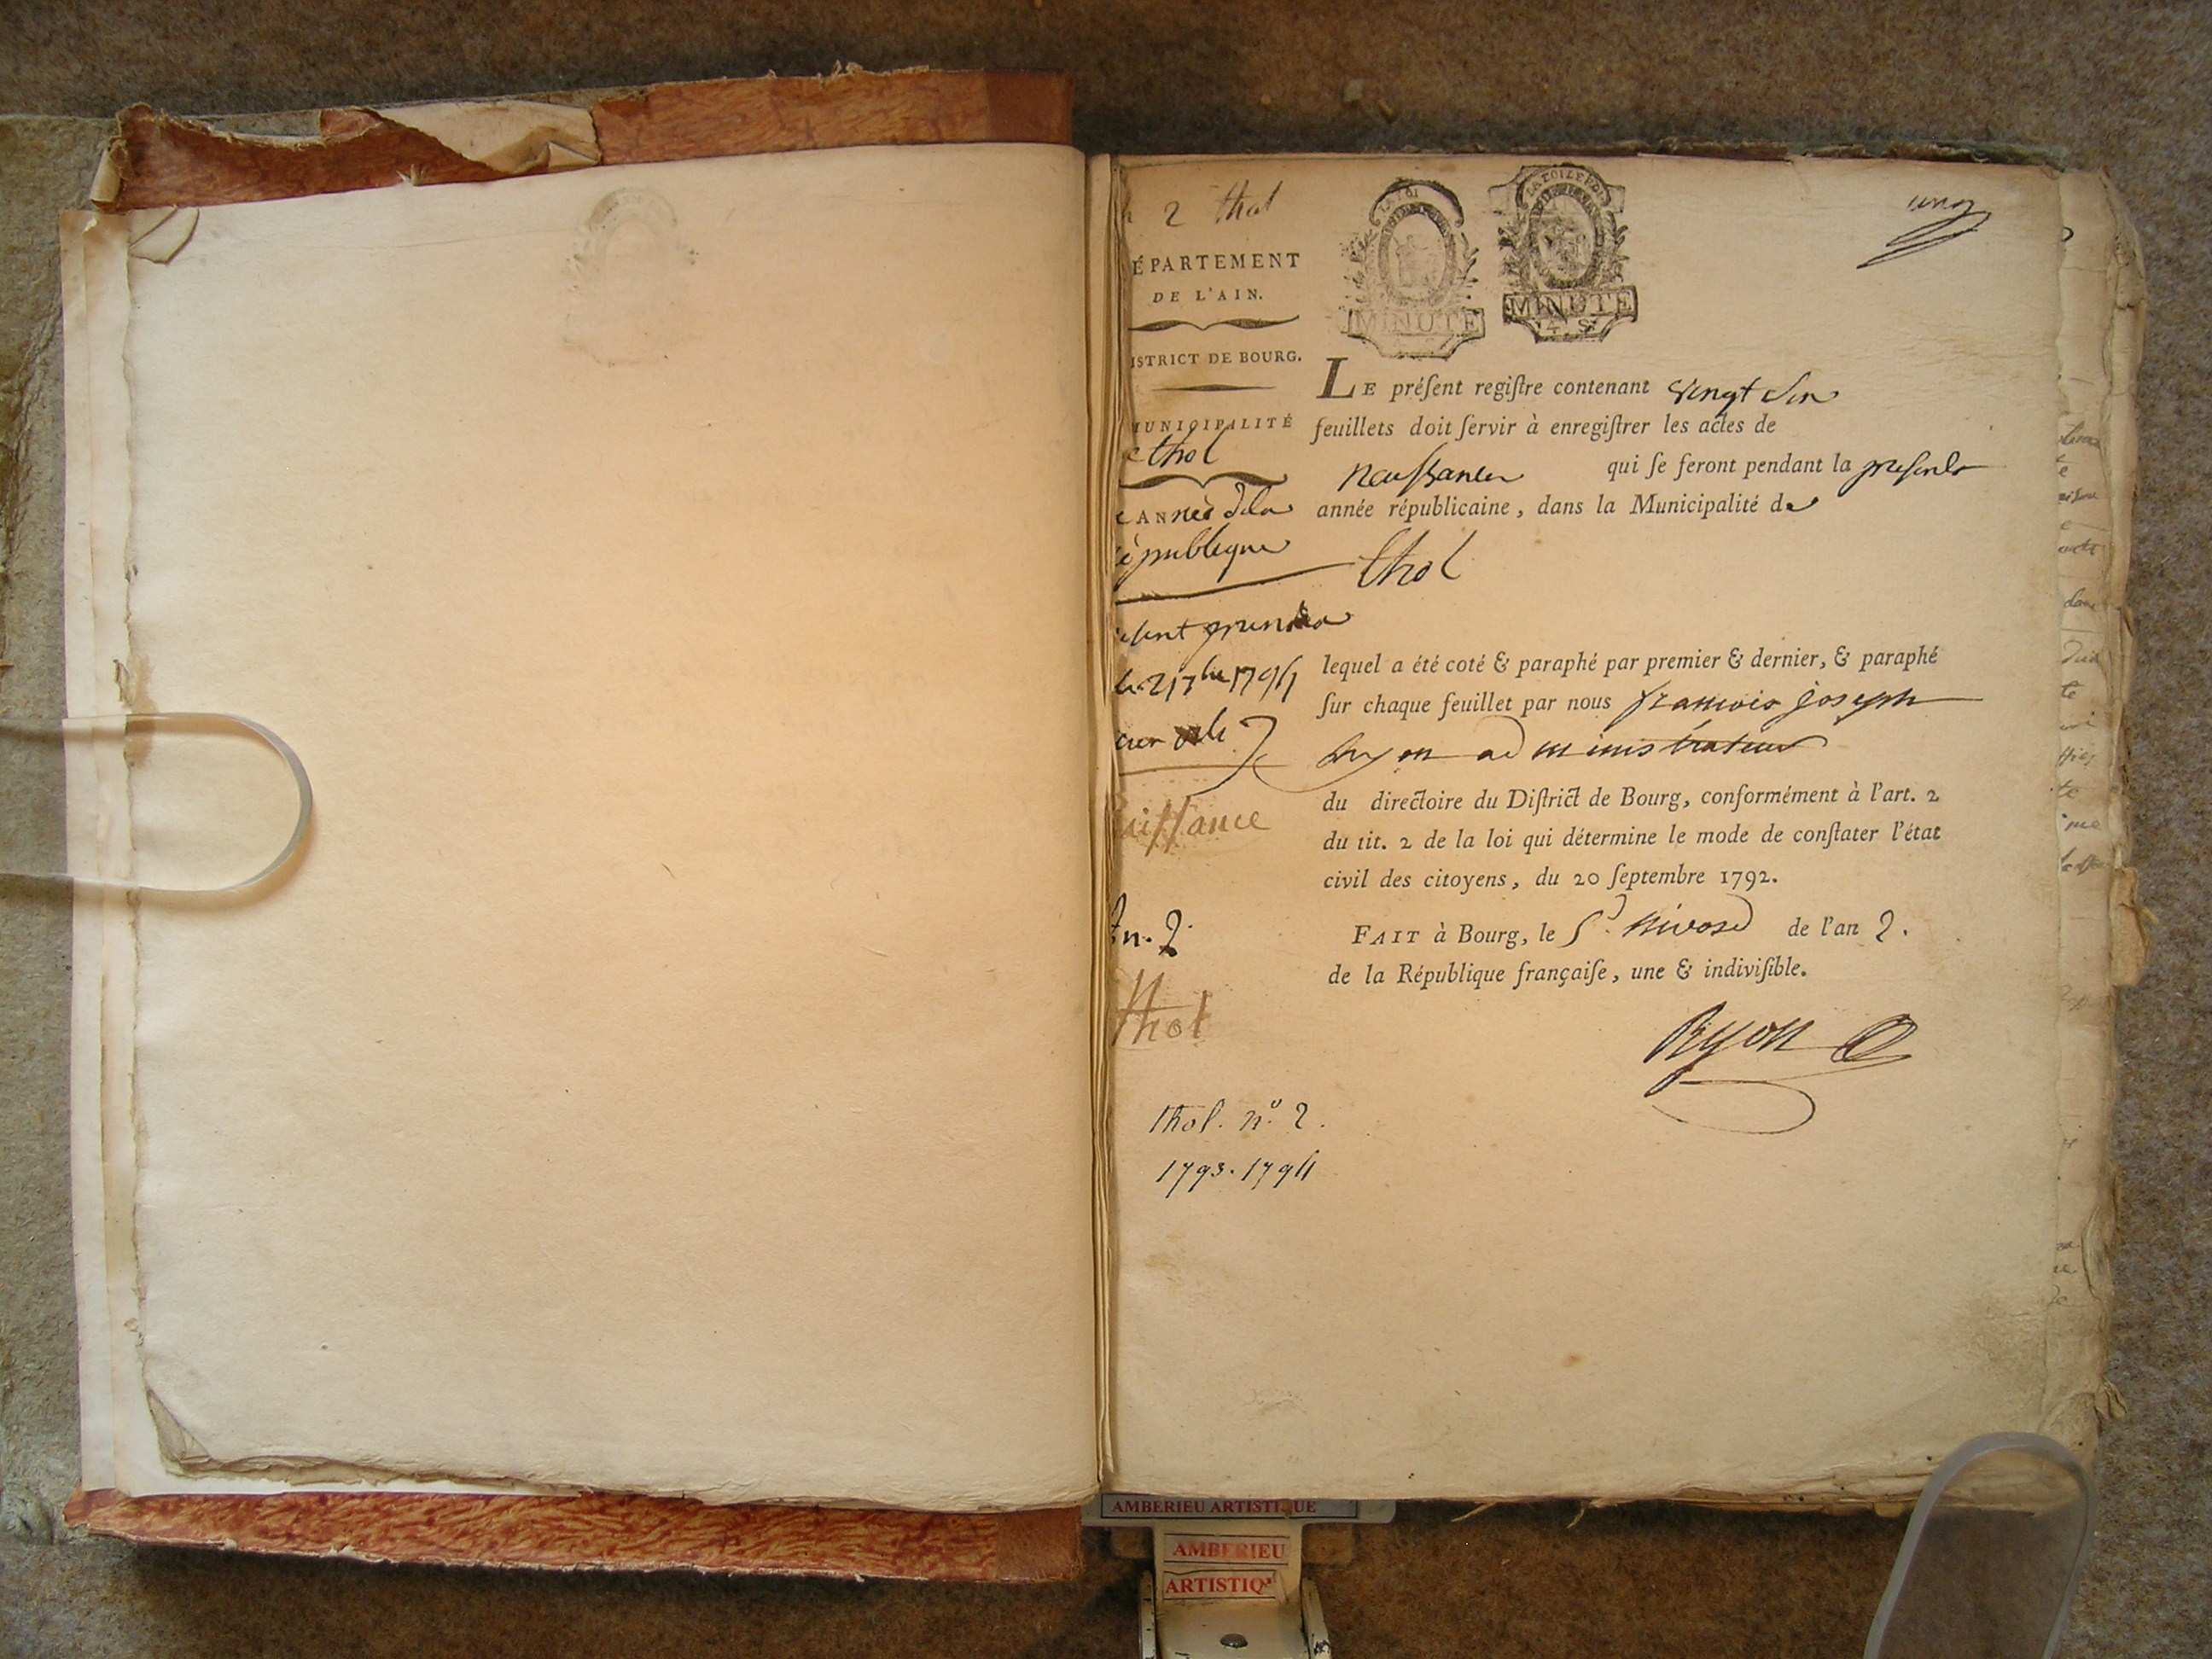 2 thol
ÉPARTEMENT
DE L'AIN.
ISTRICT DE BOURG.
MUNICIPALITÉ
e thol
e ANnée dela
épublique
le 2 7bre 1794
aissance
An. 2
Thol
Thol. n.º 2.
1793. 1794
LA LOI
MINUTE
LA LOI ET LE ROI
MINUTE
4. S.
un
LE préſent regiſtre contenant vingt six
feuillets doit ſervir à enregiſtrer les actes de
naissances qui ſe feront pendant la presente
année républicaine, dans la Municipalité de
thol
lequel a été coté & paraphé par premier & dernier, & paraphé
ſur chaque feuillet par nous francois joseph
Ryon administrateur
du directoire du Diſtrict de Bourg, conformément à l'art. 2
du tit. 2 de la loi qui détermine le mode de conſtater l'état
civil des citoyens, du 20 ſeptembre 1792.
FAIT à Bourg, le 5 nivose de l'an 2.
de la République françaiſe, une & indiviſible.
Ryon
AMBERIEU ARTISTIQUE
AMBERIEU
ARTISTIQ